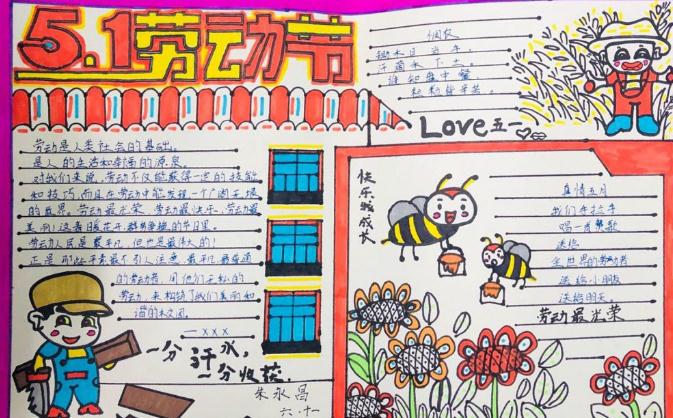 5.1劳动节
悯农
锄禾日当午,
汗滴禾下土。
谁知盘中餐
粒粒皆辛苦。
Love五一
劳动是人类社会的基础。
是人的生活和幸福的源泉。
对我们来说,劳动不仅能获得一定的技能
和技巧,而且在劳动中能发现一个广阔无垠
的世界。劳动最光荣,劳动最快乐、劳动最
美丽!这春暖花开,群
的节日里。
劳动人民是最平凡,但也是最伟大的!
正是那些平素最不引人注意,最平凡最普通
的劳动者,用他们无私的
劳动,来构筑了我们美丽和
谐的校园。
—xxx
一分汗水,
一分收获
朱永昌
六.十一
快乐我成长
真情五月
我们手拉手
唱一首赞歌
送给
全世界的劳动者
送给小朋友
送给明天。
劳动最光荣